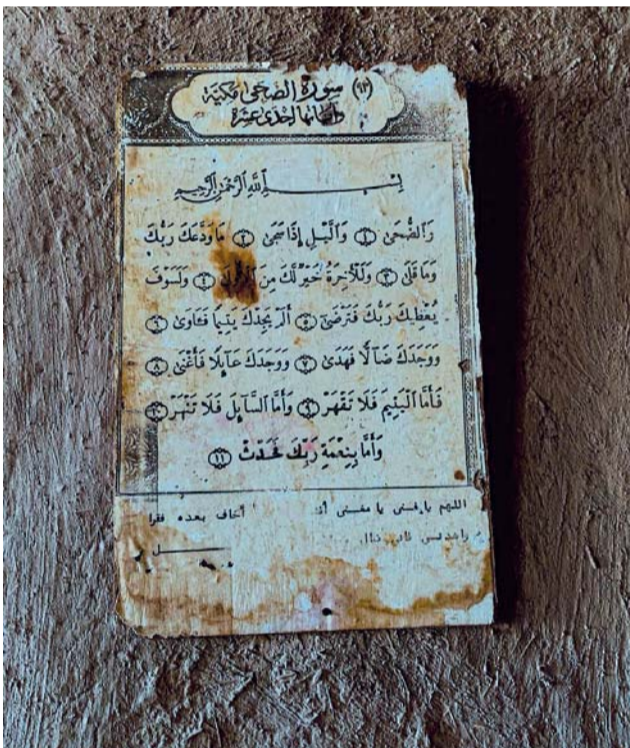 (٩٣) سورة الضحى مكية
وآياتها إحدى عشرة
بِسْمِ اللَّهِ الرَّحْمَٰنِ الرَّحِيمِ
وَٱلضُّحَىٰ ١ وَٱلَّيْلِ إِذَا سَجَىٰ ٢ مَا وَدَّعَكَ رَبُّكَ
وَمَا قَلَىٰ ٣ وَلَلْأٓخِرَةُ خَيْرٌ لَّكَ مِنَ ٱلْأُولَىٰ ٤ وَلَسَوْفَ
يُعْطِيكَ رَبُّكَ فَتَرْضَىٰٓ ٥ أَلَمْ يَجِدْكَ يَتِيمًا فَـَٔاوَىٰ ٦
وَوَجَدَكَ ضَآلًّا فَهَدَىٰ ٧ وَوَجَدَكَ عَآئِلًا فَأَغْنَىٰ ٨
فَأَمَّا ٱلْيَتِيمَ فَلَا تَقْهَرْ ٩ وَأَمَّا ٱلسَّآئِلَ فَلَا تَنْهَرْ ١٠
وَأَمَّا بِنِعْمَةِ رَبِّكَ فَحَدِّثْ ١١
اللهم يا غني يا مغني أخاف بعده فقرا